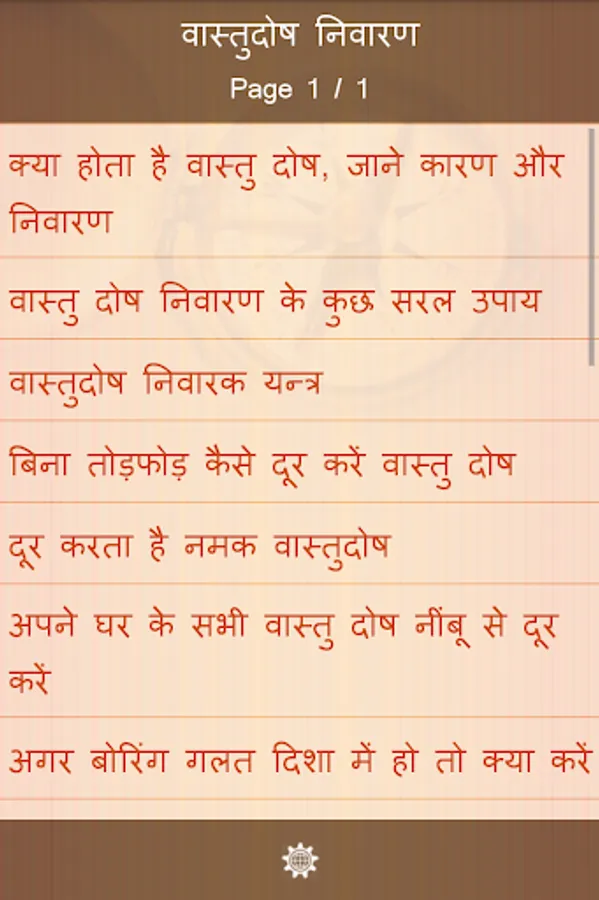 वास्तुदोष निवारण
Page 1 / 1
क्या होता है वास्तु दोष, जाने कारण और
निवारण
वास्तु दोष निवारण के कुछ सरल उपाय
वास्तुदोष निवारक यन्त्र
बिना तोड़फोड़ कैसे दूर करें वास्तु दोष
दूर करता है नमक वास्तुदोष
अपने घर के सभी वास्तु दोष नींबू से दूर
करें
अगर बोरिंग गलत दिशा में हो तो क्या करें